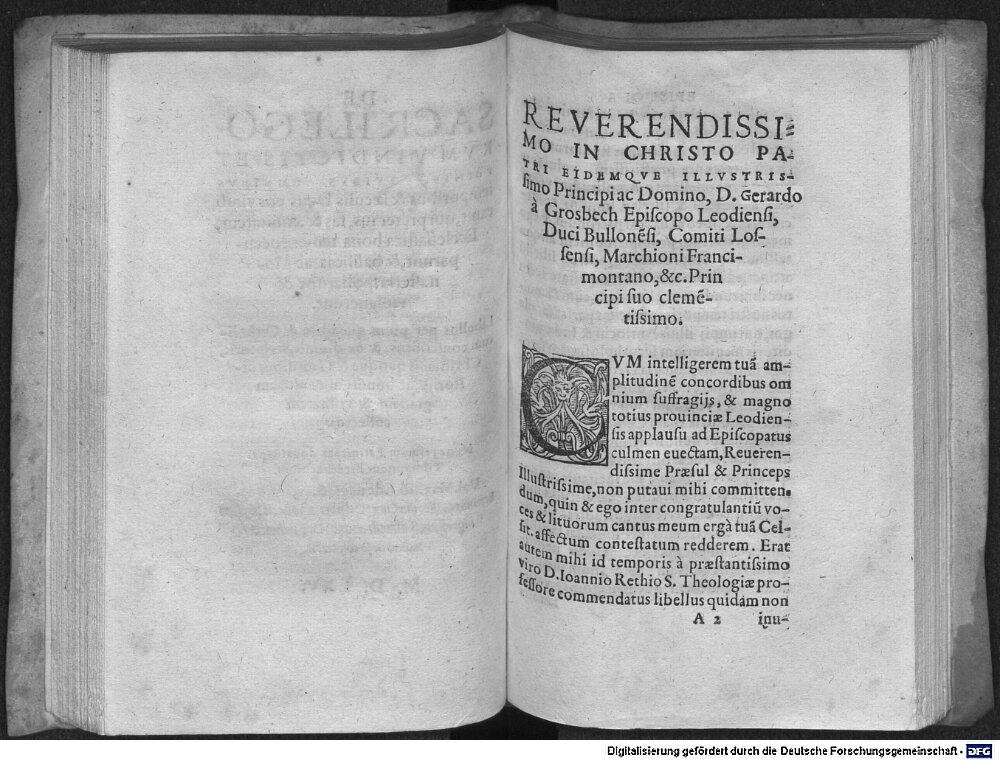 REVERENDISSI-
MO IN CHRISTO PA-
TRI EIDEMQVE ILLVSTRIS-
ſimo Principi ac Domino, D. Gerardo
à Groſbech Epiſcopo Leodienſi,
Duci Bullonēſi, Comiti Loſ-
ſenſi, Marchioni Franci-
montano, &c. Prin
cipi ſuo clemē-
tiſſimo.
CVM intelligerem tuā am-
plitudinē concordibus om
nium ſuffragijs, & magno
totius prouinciæ Leodien-
ſis applauſu ad Epiſcopatus
culmen euectam, Reueren-
diſſime Præſul & Princeps
Illuſtriſſime, non putaui mihi committen-
dum, quin & ego inter congratulantiū vo-
ces & lituorum cantus meum ergà tuā Cel-
ſit. affectum conteſtatum redderem. Erat
autem mihi id temporis à præſtantiſſimo
viro D. Ioannio Rethio S. Theologiæ pro-
feſſore commendatus libellus quidam non
A 2 inu-
Digitalisierung gefördert durch die Deutsche Forschungsgemeinschaft - DFG